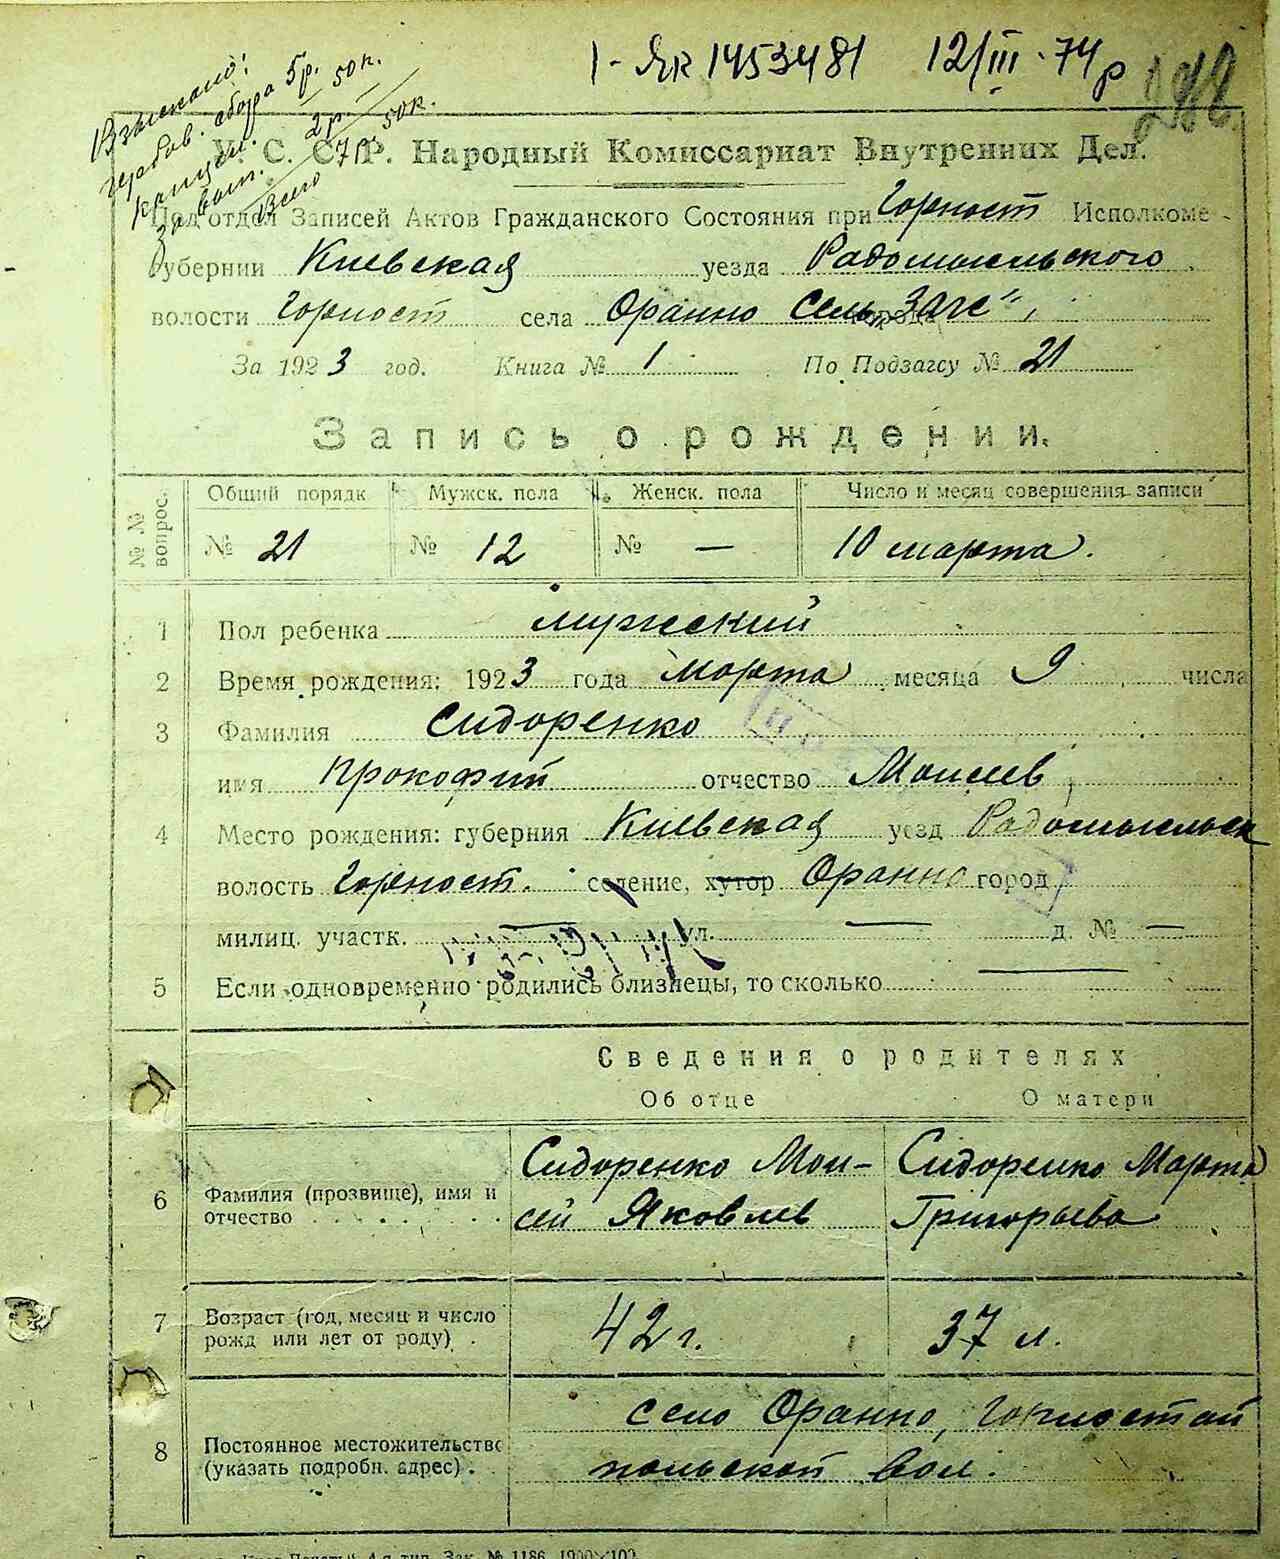 1-ЯК 1453481 12/III-74 р
288
Взыскано:
гербов. сбора 5р.
канцел. 2р. 50к.
за бот. 50к.
Всего 7р. 50к.
У. С. С. Р. Народный Комиссариат Внутренних Дел.
Подотдел Записей Актов Гражданского Состояния при Горност Исполкоме
Губернии Киевская уезда Радомысльского
волости Горност села Оранно Сель „Загс"
За 1923 год. Книга № 1 По Подзагсу № 21
Запись о рождении.
№ № вопрос.
Общий порядк Мужск. пола Женск. пола Число и месяц совершения записи
№ 21 № 12 № — 10 марта.
1 Пол ребенка мужский
2 Время рождения: 1923 года Марта месяца 9 числа
3 Фамилия Сидоренко
имя Прокофий отчество Моисеев
4 Место рождения: губерния Киевская уезд Радомысльск
волость Горност. селение, хутор Оранно город
милиц. участк. — ул. — д. № —
5 Если одновременно родились близнецы, то сколько —
Сведения о родителях
Об отце О матери
Сидоренко Мои- Сидоренко Марта
6 Фамилия (прозвище), имя и
отчество . . . . . . . . сей Яковлев Григорьева
7 Возраст (год, месяц и число
рожд или лет от роду) . 42 г. 37 л.
село Оранно, Горностай
8 Постоянное местожительство
(указать подробн. адрес) . польской вол.
4-я тип. Зак. № 1186